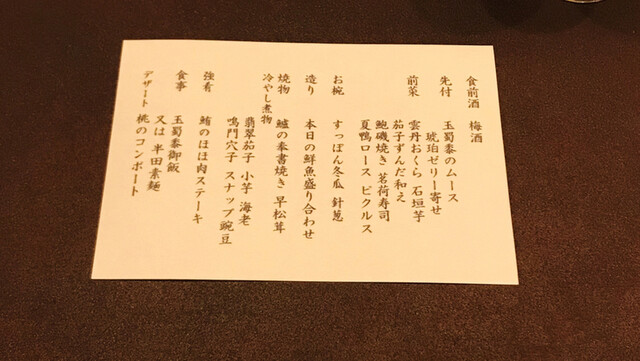 食前酒 梅酒
先付 玉蜀黍のムース
琥珀ゼリー寄せ
前菜 雲丹おくら 石垣芋
茄子ずんだ和え
鮑磯焼き 茗荷寿司
夏鴨ロース ピクルス
お椀 すっぽん冬瓜 針葱
造り 本日の鮮魚盛り合わせ
焼物 鱸の奉書焼き 早松茸
冷やし煮物
翡翠茄子 小芋 海老
鳴門穴子 スナップ豌豆
強肴 鮪のほほ肉ステーキ
食事 玉蜀黍御飯
又は 半田素麺
デザート 桃のコンポート